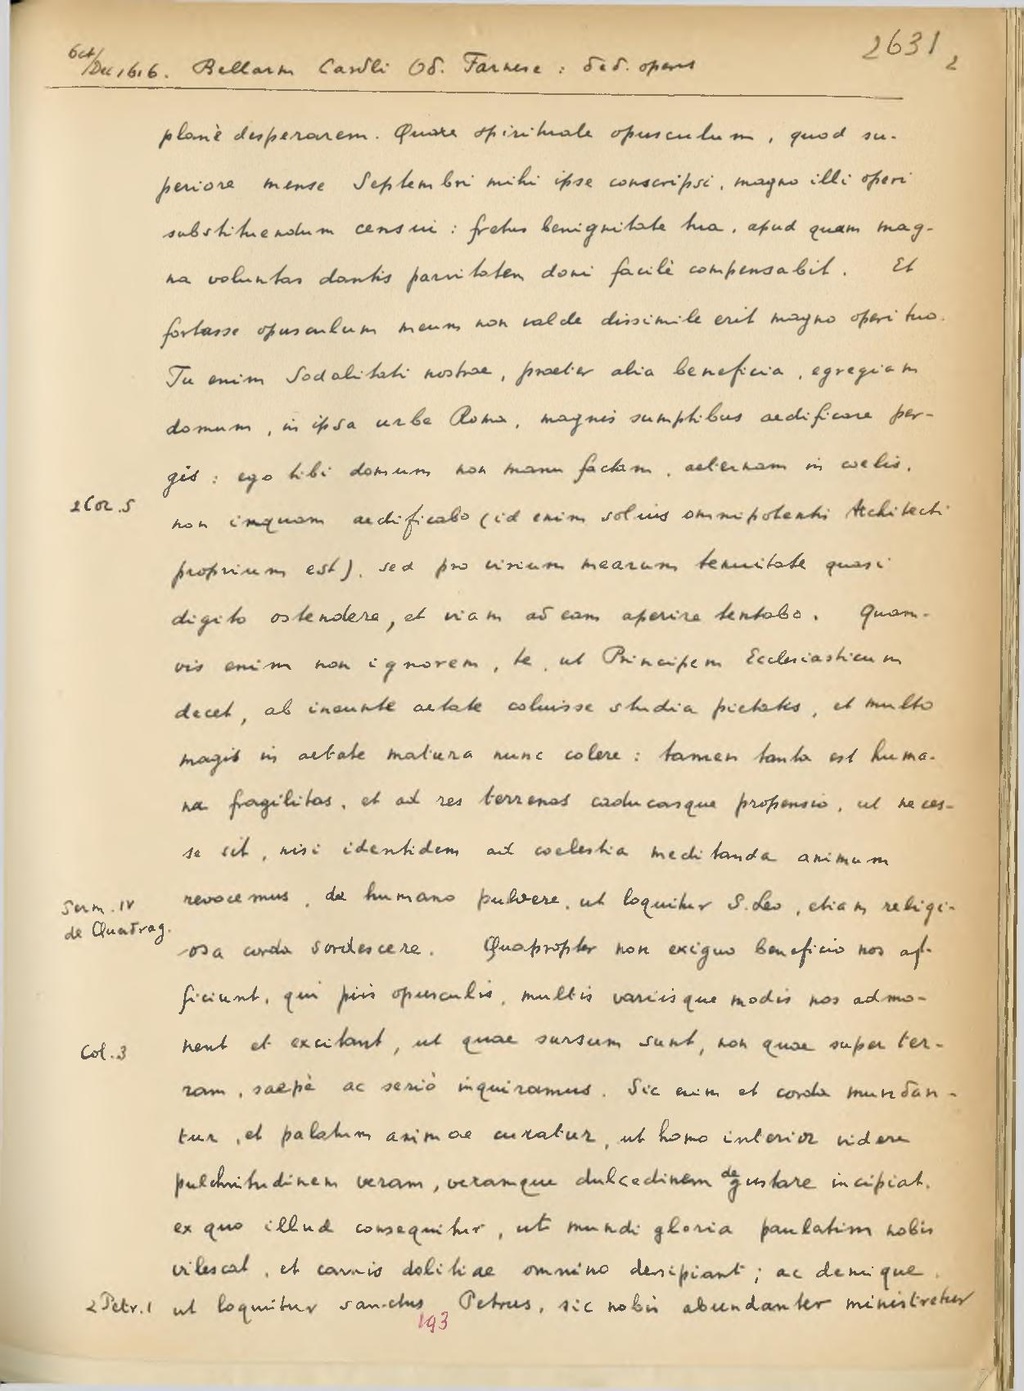 Oct/Dec 1616. Bellarm Cardli Od. Farnese : ded. operis
2631 2
planè desperarem. Quare spirituale opusculum, quod su-
periore mense Septembri mihi ipse conscripsi, magno illi operi
substituendum censui : fretus benignitate tua, apud quam mag-
na voluntas dantis parvitatem doni facilè compensabit. Et
fortasse opusculum meum non valde dissimile erit magno operi tuo.
Tu enim Sodalitati nostrae, praeter alia beneficia, egregiam
domum, in ipsa urbe Roma, magnis sumptibus aedificare per-
gis : ego tibi domum non manu factam, aeternam in coelis,
2 Cor. 5
non inquam aedificabo (id enim solius omnipotentis Architecti
proprium est), sed pro virium mearum tenuitate quasi
digito ostendere, et viam ad eam aperire tentabo. Quam-
vis enim non ignorem, te, ut Principem Ecclesiasticum
decet, ab ineunte aetate coluisse studia pietatis, et multo
magis in aetate matura nunc colere : tamen tanta est huma-
na fragilitas, et ad res terrenas caducasque propensio, ut neces-
se sit, nisi identidem ad coelestia meditanda animum
Serm. IV
de Quadrag.
revocemus, de humano pulvere, ut loquitur S. Leo, etiam religi-
osa corda sordescere. Quapropter non exiguo beneficio nos af-
ficiunt, qui piis opusculis, multis variisque modis nos admo-
Col. 3
nent et excitant, ut quae sursum sunt, non quae super ter-
ram, saepè ac seriò inquiramus. Sic enim et corda mundan-
tur, et palatum animae curatur, ut homo interior videre
pulchritudinem veram, veramque dulcedinem degustare incipiat.
ex quo illud consequitur, ut mundi gloria paulatim nobis
vilescat, et carnis delitiae omnino desipiant ; ac denique,
2 Petr. 1
ut loquitur sanctus Petrus, sic nobis abundanter ministretur
193